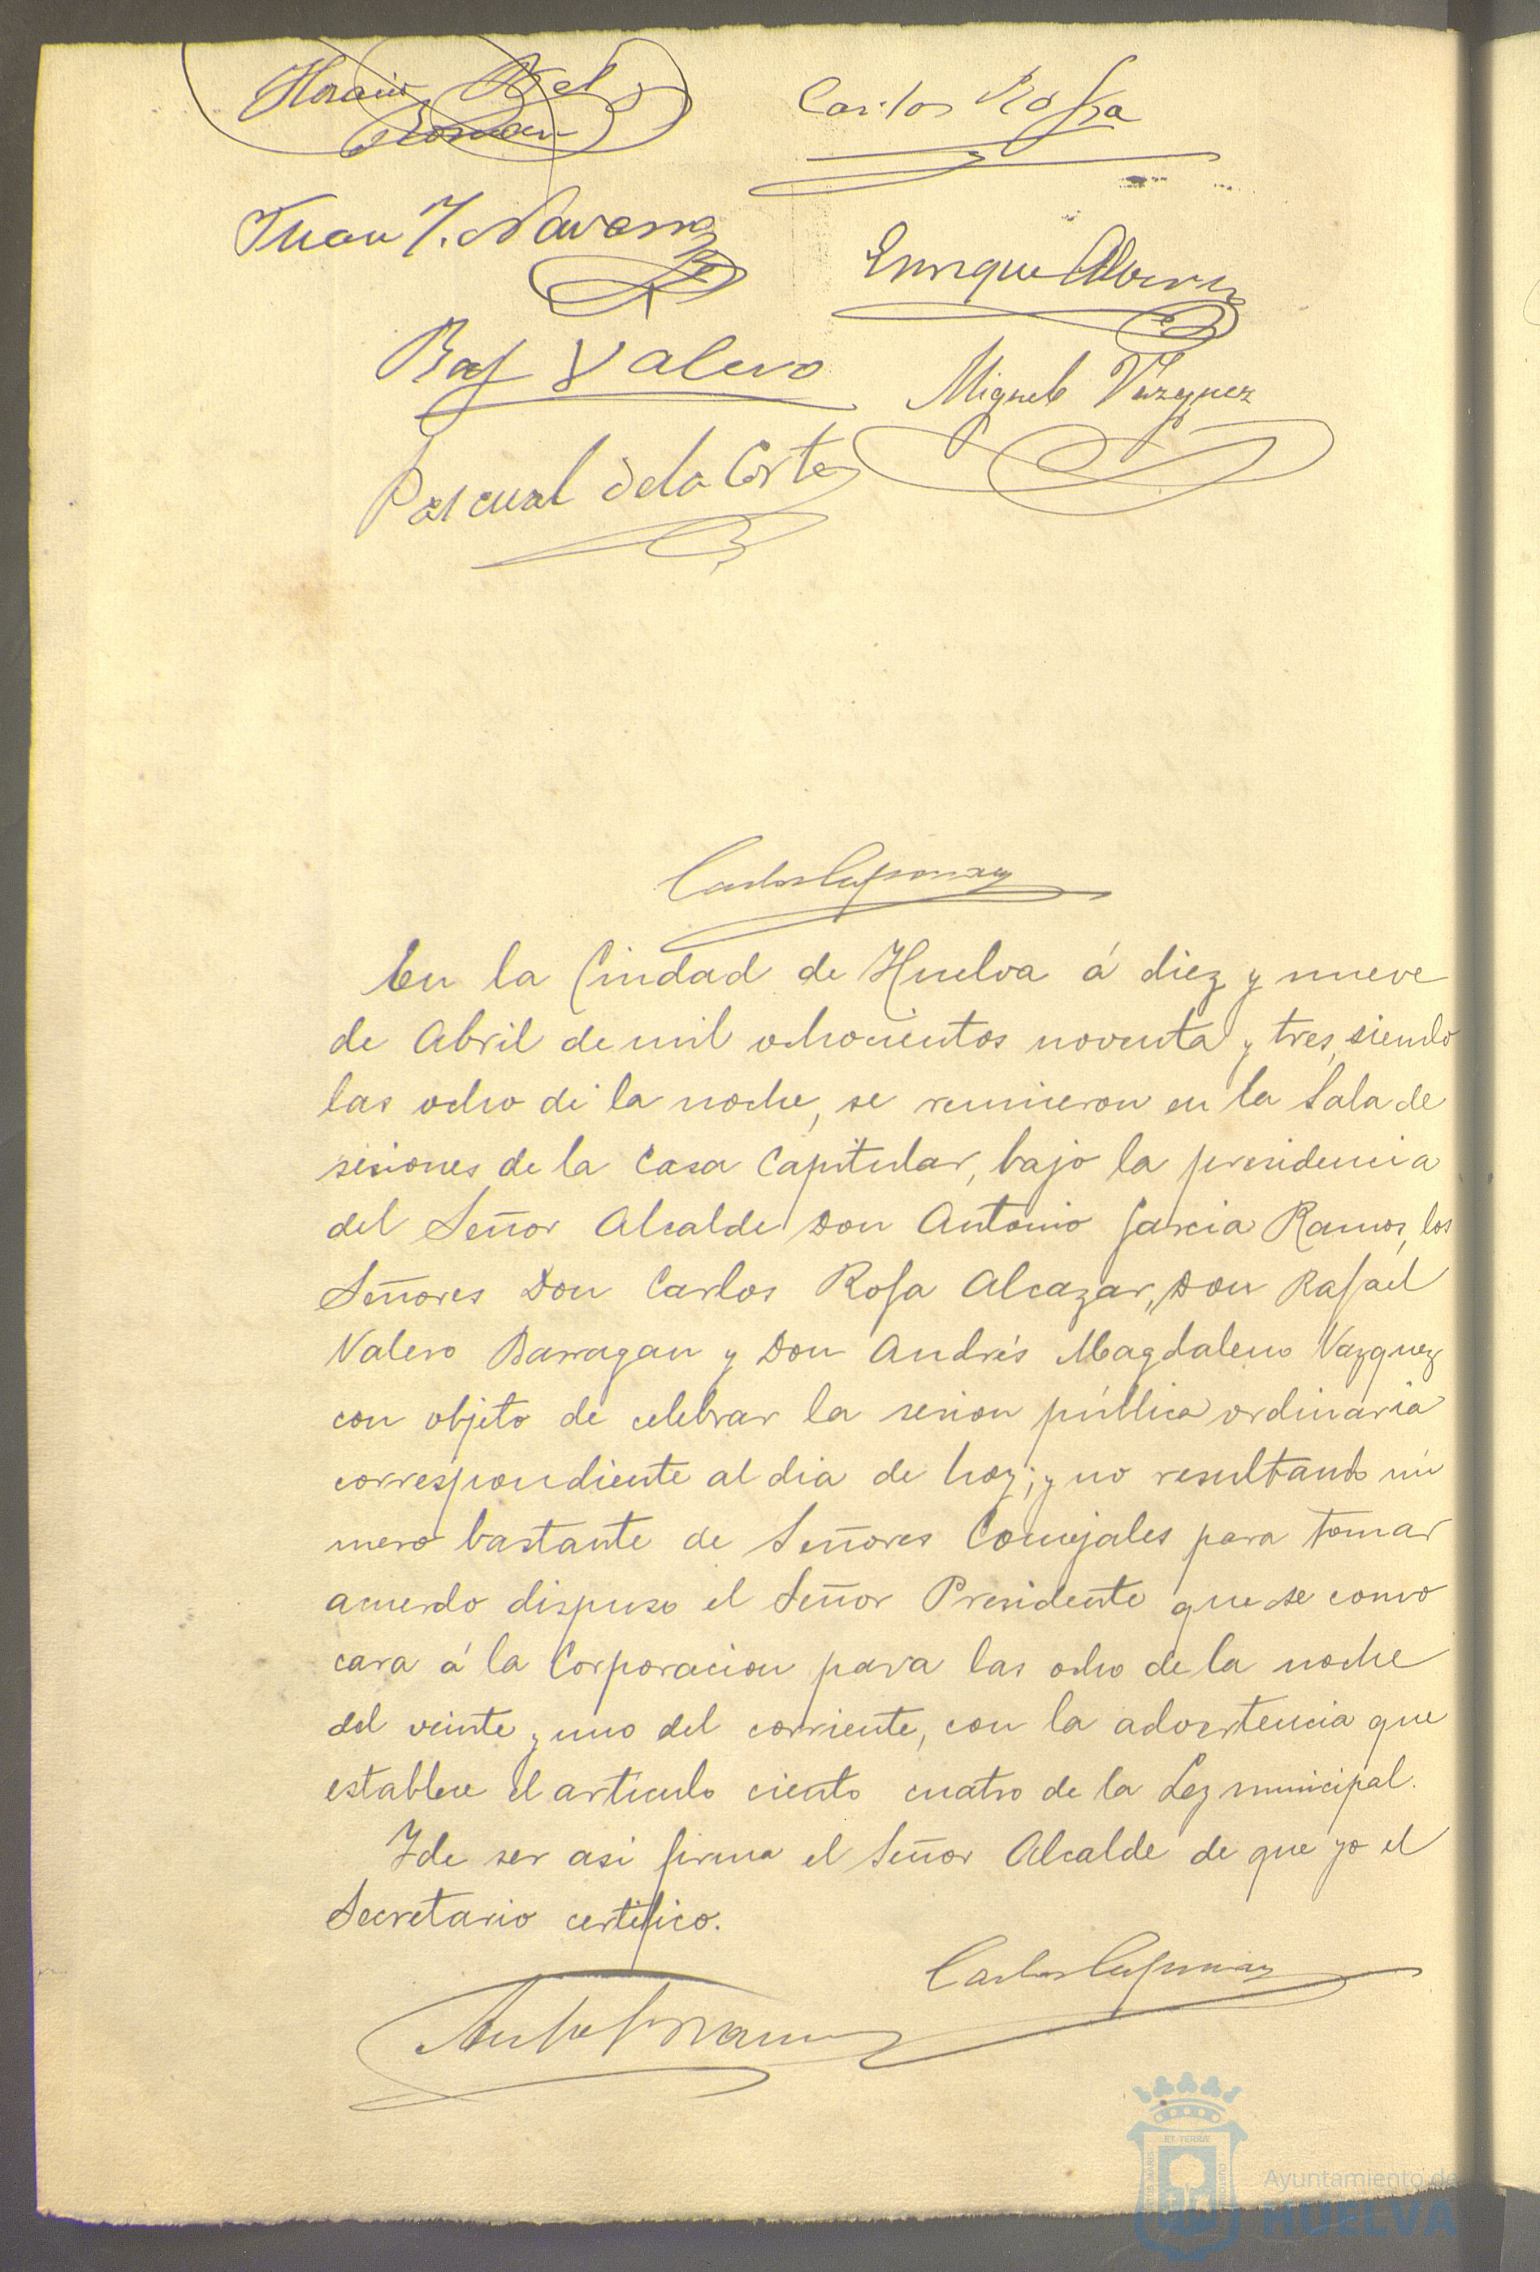 Horacio Bel
Roman
Carlos Rofa
Juan J. Navarro
Enrique Alvarez
Raf Valero
Miguel Vazquez
Pascual de la Corte
Carlos
En la Ciudad de Huelva á diez y nueve
de Abril de mil ochocientos noventa y tres, siendo
las ocho de la noche, se reunieron en la Sala de
sesiones de la Casa Capitular, bajo la presidencia
del Señor Alcalde Don Antonio Garcia Ramos, los
Señores Don Carlos Rofa Alcazar, Don Rafael
Valero Barragan y Don Andrés Magdaleno Vazquez
con objeto de celebrar la sesion pública ordinaria
correspondiente al dia de hoy; y no resultando nú
mero bastante de Señores Concejales para tomar
acuerdo dispuso el Señor Presidente que se convo
cara á la Corporacion para las ocho de la noche
del veinte y uno del corriente, con la advertencia que
establece el articulo ciento cuatro de la Ley municipal.
Y de ser asi firma el Señor Alcalde de que yo el
Secretario certifico.
Carlos
Ant° G Ramos
Ayuntamiento de
HUELVA